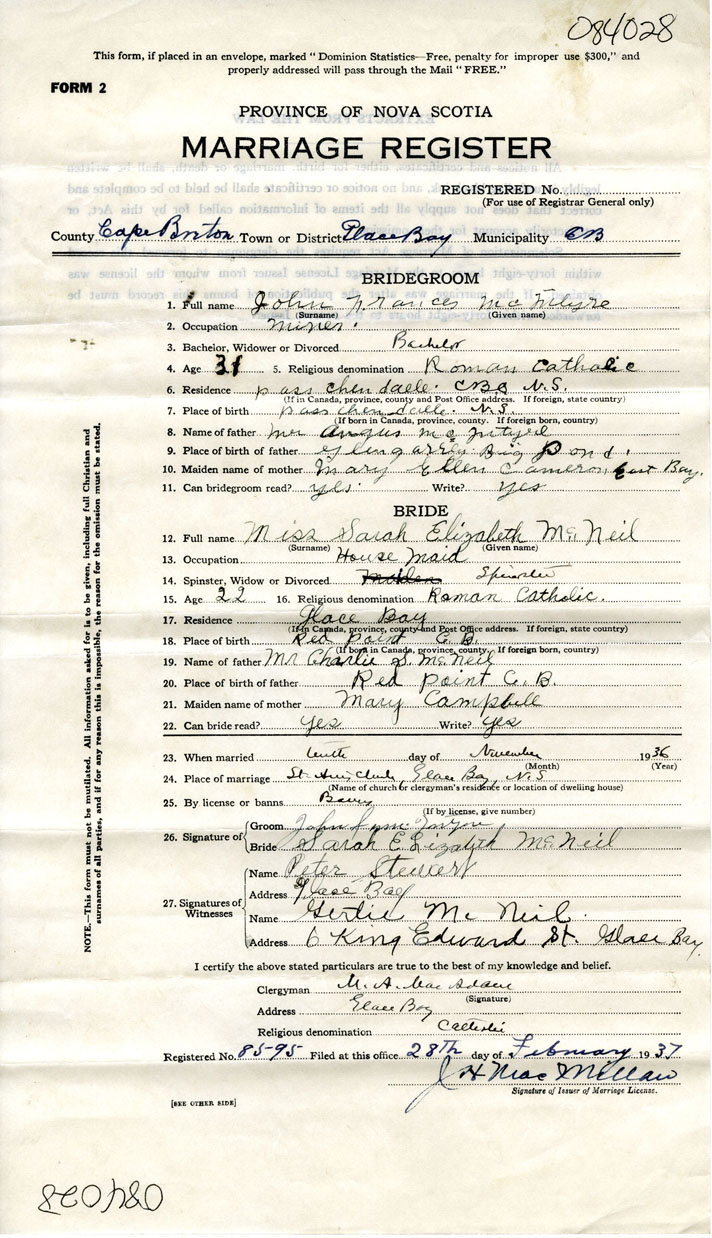 084028
This form, if placed in an envelope, marked "Dominion Statistics—Free, penalty for improper use $300," and
properly addressed will pass through the Mail "FREE."
FORM 2
PROVINCE OF NOVA SCOTIA
MARRIAGE REGISTER
REGISTERED No.
(For use of Registrar General only)
County Cape Breton Town or District Glace Bay Municipality CB
BRIDEGROOM
1. Full name John Frances McIntyre
(Surname) (Given name)
2. Occupation miner.
3. Bachelor, Widower or Divorced Bachelor
4. Age 31 5. Religious denomination Roman Catholic
6. Residence passchendaele. CB N.S.
(If in Canada, province, county and Post Office address. If foreign, state country)
7. Place of birth passchendaele. N.S.
(If born in Canada, province, county. If foreign born, country)
8. Name of father Mr Angus McIntyre
9. Place of birth of father Glengarry Big Pond.
10. Maiden name of mother Mary Ellen Cameron, East Bay.
11. Can bridegroom read? yes. Write? yes
BRIDE
12. Full name Miss Sarah Elizabeth McNeil
(Surname) (Given name)
13. Occupation House Maid
14. Spinster, Widow or Divorced Maiden Spinster
15. Age 22 16. Religious denomination Roman Catholic.
17. Residence Glace Bay
(If in Canada, province, county and Post Office address. If foreign, state country)
18. Place of birth Red Point C.B.
(If born in Canada, province, county. If foreign born, country)
19. Name of father Mr Charlie S. McNeil
20. Place of birth of father Red Point C.B.
21. Maiden name of mother Mary Campbell
22. Can bride read? Yes Write? Yes
23. When married tenth day of November 1936
(Month) (Year)
24. Place of marriage St. Ann's Church, Glace Bay, N.S
(Name of church or clergyman's residence or location of dwelling house)
25. By license or banns Banns
(If by license, give number)
26. Signature of
Groom John
Bride Sarah Elizabeth McNeil
27. Signatures of Witnesses
Name Peter Stewart
Address Glace Bay
Name Gertie McNeil.
Address 6 King Edward St. Glace Bay.
I certify the above stated particulars are true to the best of my knowledge and belief.
Clergyman M. A. MacAdam
(Signature)
Address Glace Bay
Religious denomination Catholic
Registered No. 85-95 Filed at this office 28th day of February 1937
J H MacMillan
Signature of Issuer of Marriage License.
[SEE OTHER SIDE]
NOTE.—This form must not be mutilated. All information asked for is to be given, including full Christian and
surnames of all parties, and if for any reason this is impossible, the reason for the omission must be stated.
084028